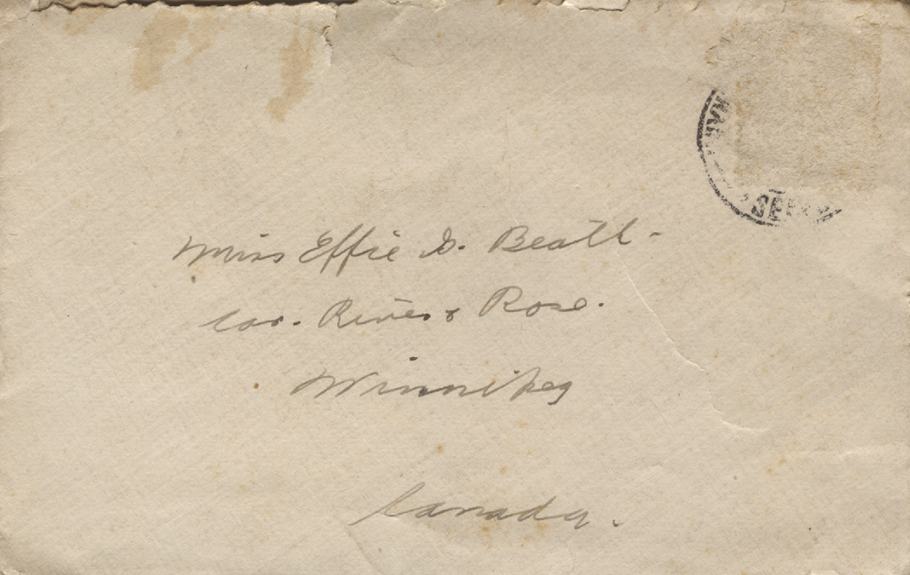 Miss Effie D. Beatt.
Cor. River & Rose.
Winnipeg
Canada.